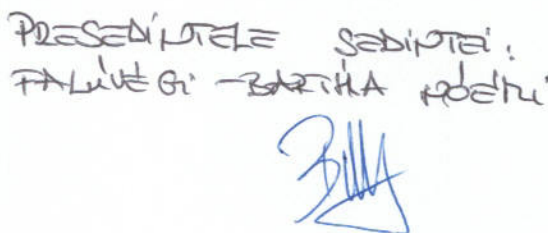 PRESEDINTELE SEDINTEI:
FALUVÉGI-BARTHA NÓEMI